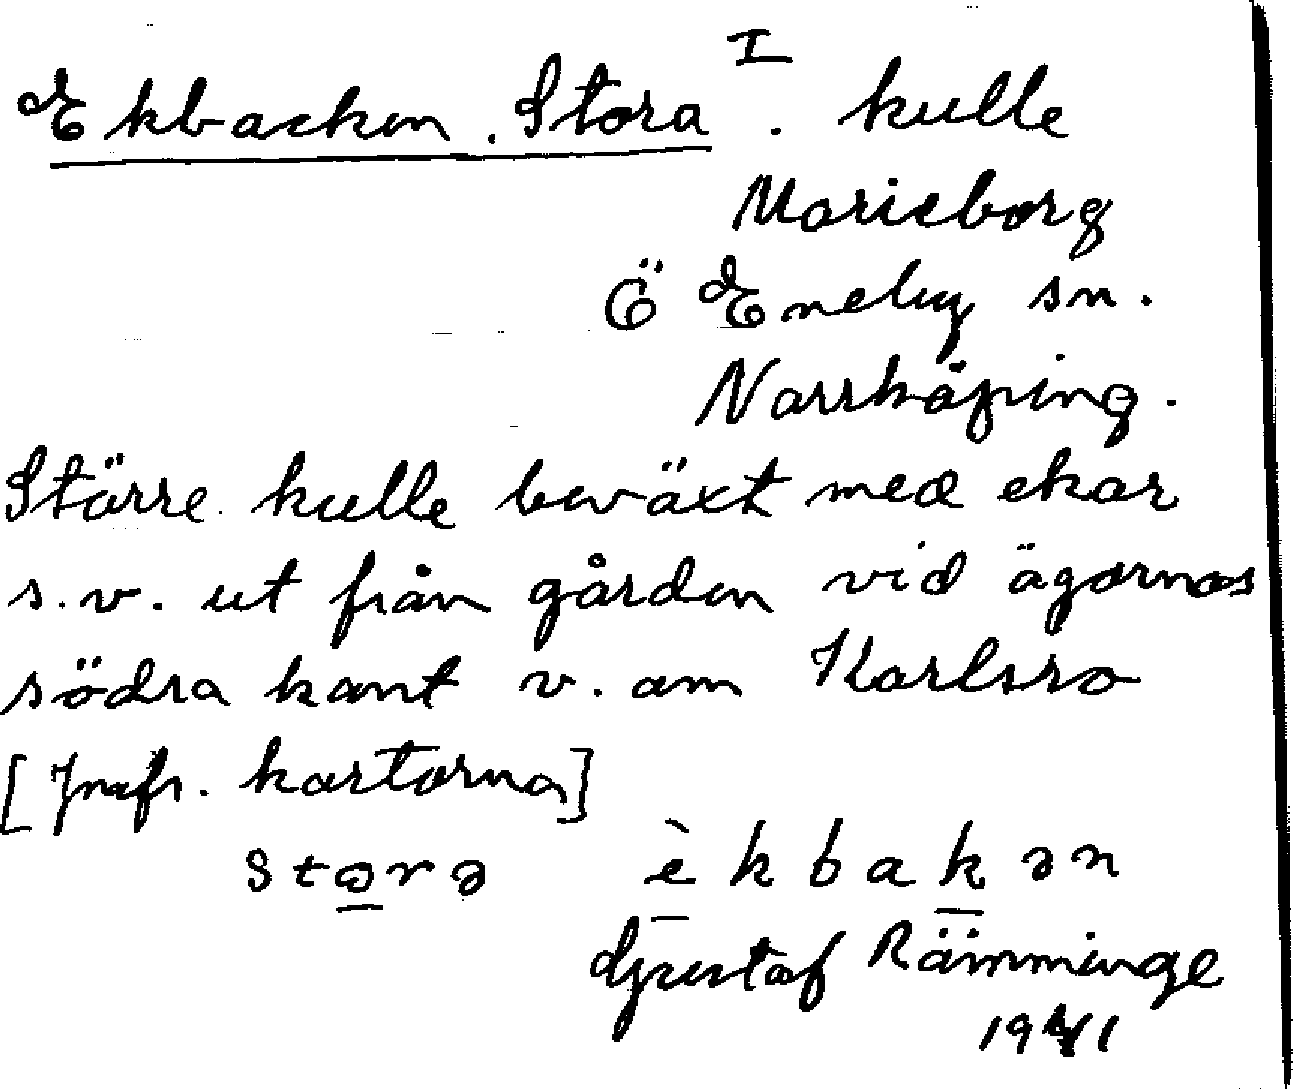 I
Ekbacken. Stora. kulle
Marieborg
Ö Eneby sn.
Norrköping.
Större kulle beväxt med ekar
s.v. ut från gården vid ägornas
södra kant v. om Karlsro
[Jmfr. kartorna]
Storə èkbakən
Gustaf Rämminge
19